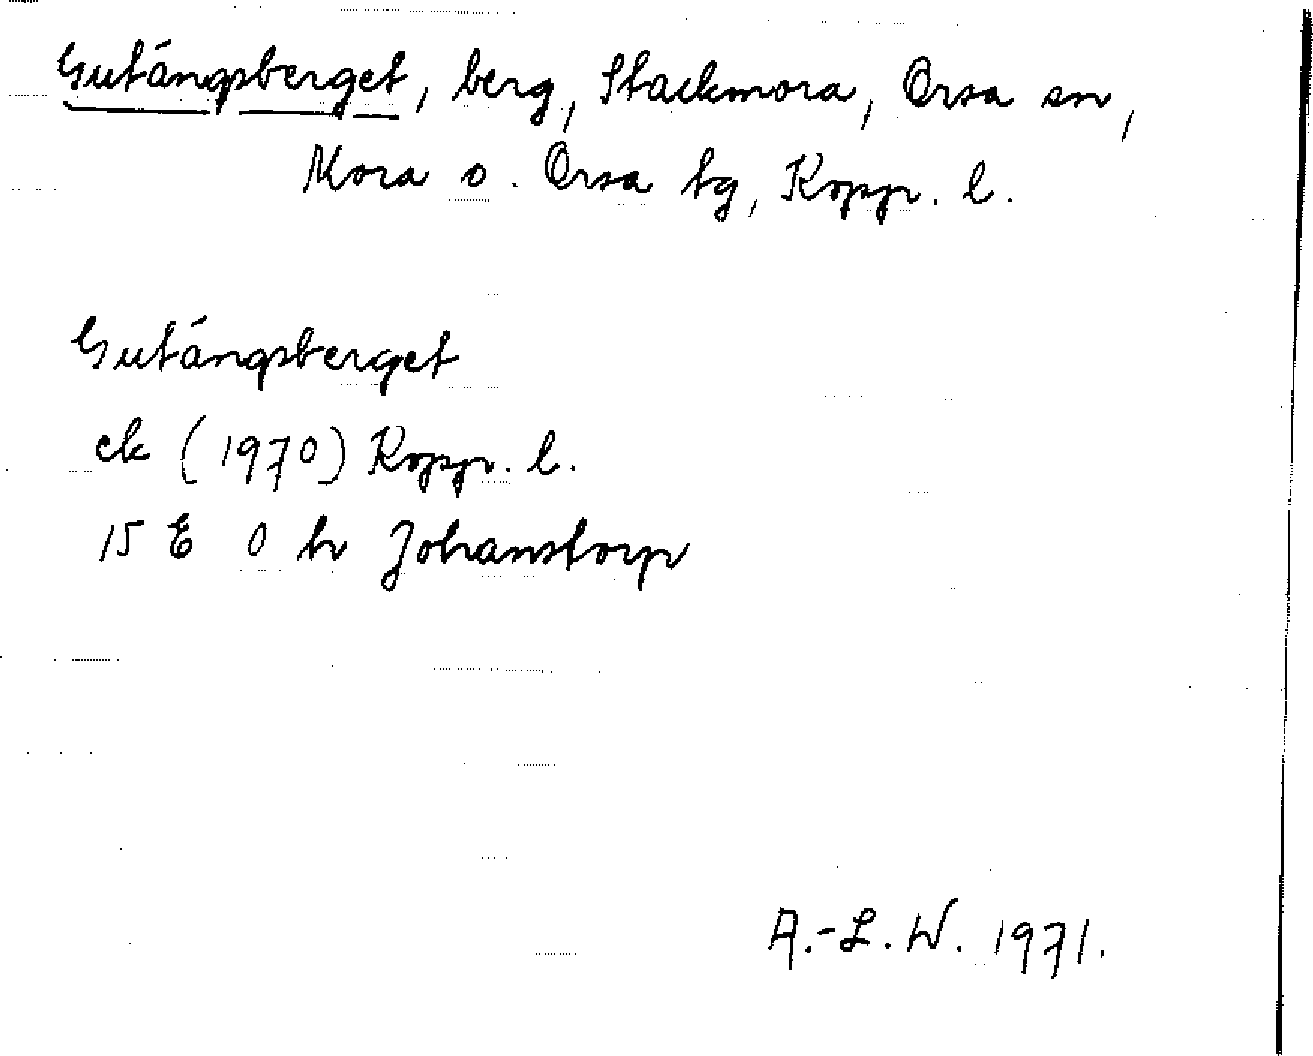 Gutängsberget, berg, Stackmora, Orsa sn,
Mora o. Orsa tg, Kopp. l.
Gutängsberget
ek (1970) Kopp. l.
15 E 0 h Johanstorp
A.-L. W. 1971.